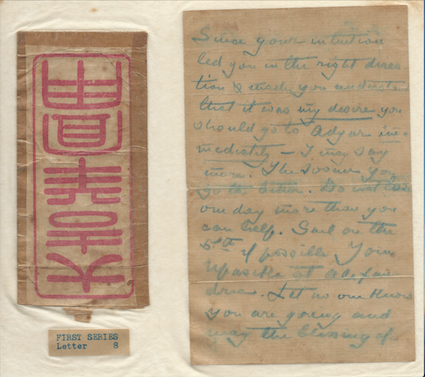 Since your intuition
led you in the right direc
tion & made you understand
that it was my desire you
should go to Adyar im-
mediately — I may say
more. The sooner you
go the better. Do not lose
one day more than you
can help. Sail on the
5th if possible. Join
Upasika at Alexan
dria. Let no one know
you are going and
may the blessing of
FIRST SERIES
Letter 8